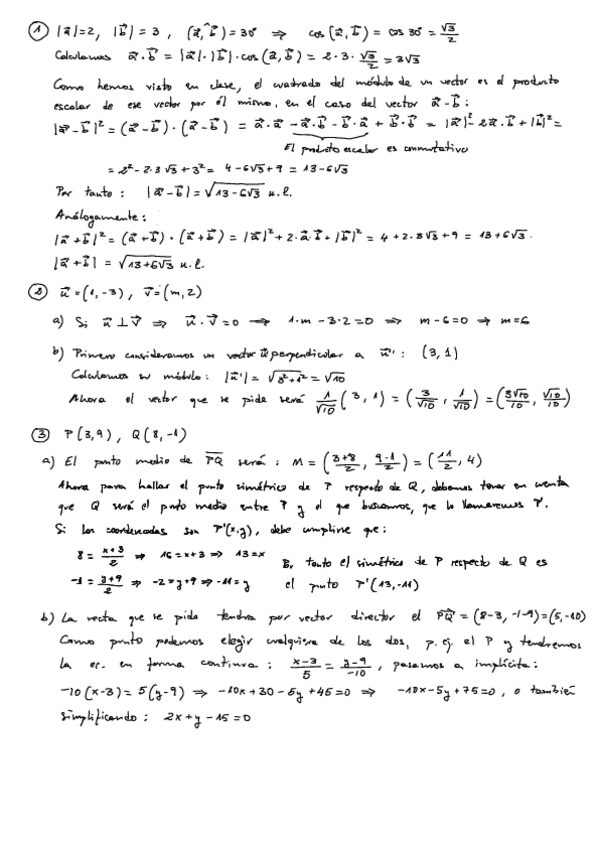 ① |a⃗|=2, |b⃗|=3, (a⃗,^b⃗)=30° ⇒ cos(a⃗,b⃗) = cos 30° = √3/2
Calculamos a⃗·b⃗ = |a⃗|·|b⃗|·cos(a⃗,b⃗) = 2·3·√3/2 = 3√3
Como hemos visto en clase, el cuadrado del módulo de un vector es el producto
escalar de ese vector por él mismo, en el caso del vector a⃗-b⃗:
|a⃗-b⃗|² = (a⃗-b⃗)·(a⃗-b⃗) = a⃗·a⃗ - a⃗·b⃗ - b⃗·a⃗ + b⃗·b⃗ = |a⃗|² - 2a⃗·b⃗ + |b⃗|² =
El producto escalar es conmutativo
= 2² - 2·3√3 + 3² = 4 - 6√3 + 9 = 13 - 6√3
Por tanto: |a⃗-b⃗| = √(13-6√3) u.l.
Análogamente:
|a⃗+b⃗|² = (a⃗+b⃗)·(a⃗+b⃗) = |a⃗|² + 2·a⃗·b⃗ + |b⃗|² = 4 + 2·3√3 + 9 = 13 + 6√3.
|a⃗+b⃗| = √(13+6√3) u.l.
② u⃗=(1,-3), v⃗=(m,2)
a) Si u⃗ ⊥ v⃗ ⇒ u⃗·v⃗=0 ⇒ 1·m - 3·2 = 0 ⇒ m-6=0 ⇒ m=6
b) Primero consideramos un vector u⃗' perpendicular a u⃗: (3,1)
Calculamos su módulo: |u⃗'| = √(3²+1²) = √10
Ahora el vector que se pide será 1/√10 (3,1) = (3/√10, 1/√10) = (3√10/10, √10/10)
③ P(3,9), Q(8,-1)
a) El punto medio de PQ será: M = (3+8/2, 9-1/2) = (11/2, 4)
Ahora para hallar el punto simétrico de P respecto de Q, debemos tener en cuenta
que Q será el punto medio entre P y el que buscamos, que lo llamaremos P'.
Si las coordenadas son P'(x,y), debe cumplirse que:
8 = x+3/2 ⇒ 16=x+3 ⇒ 13=x Por tanto el simétrico de P respecto de Q es
-1 = y+9/2 ⇒ -2=y+9 ⇒ -11=y el punto P'(13,-11)
b) La recta que se pide tendrá por vector director el PQ⃗ = (8-3, -1-9) = (5,-10)
Como punto podemos elegir cualquiera de los dos, p. ej. el P y tendremos
la ec. en forma continua: x-3/5 = y-9/-10, pasamos a implícita:
-10(x-3) = 5(y-9) ⇒ -10x+30-5y+45=0 ⇒ -10x-5y+75=0, o también
simplificando: 2x+y-15=0